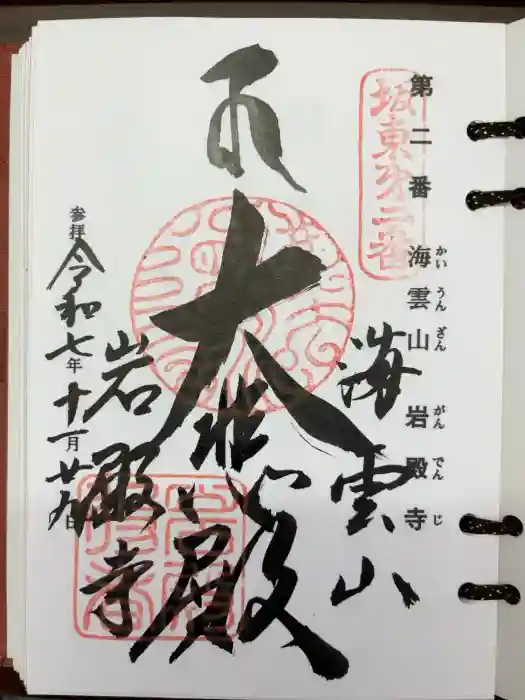 第二番 海雲山 岩殿寺
かいうんざん がんでんじ
坂東第二番
海雲山
大悲殿
岩殿寺
参拝
令和七年十一月廿九日